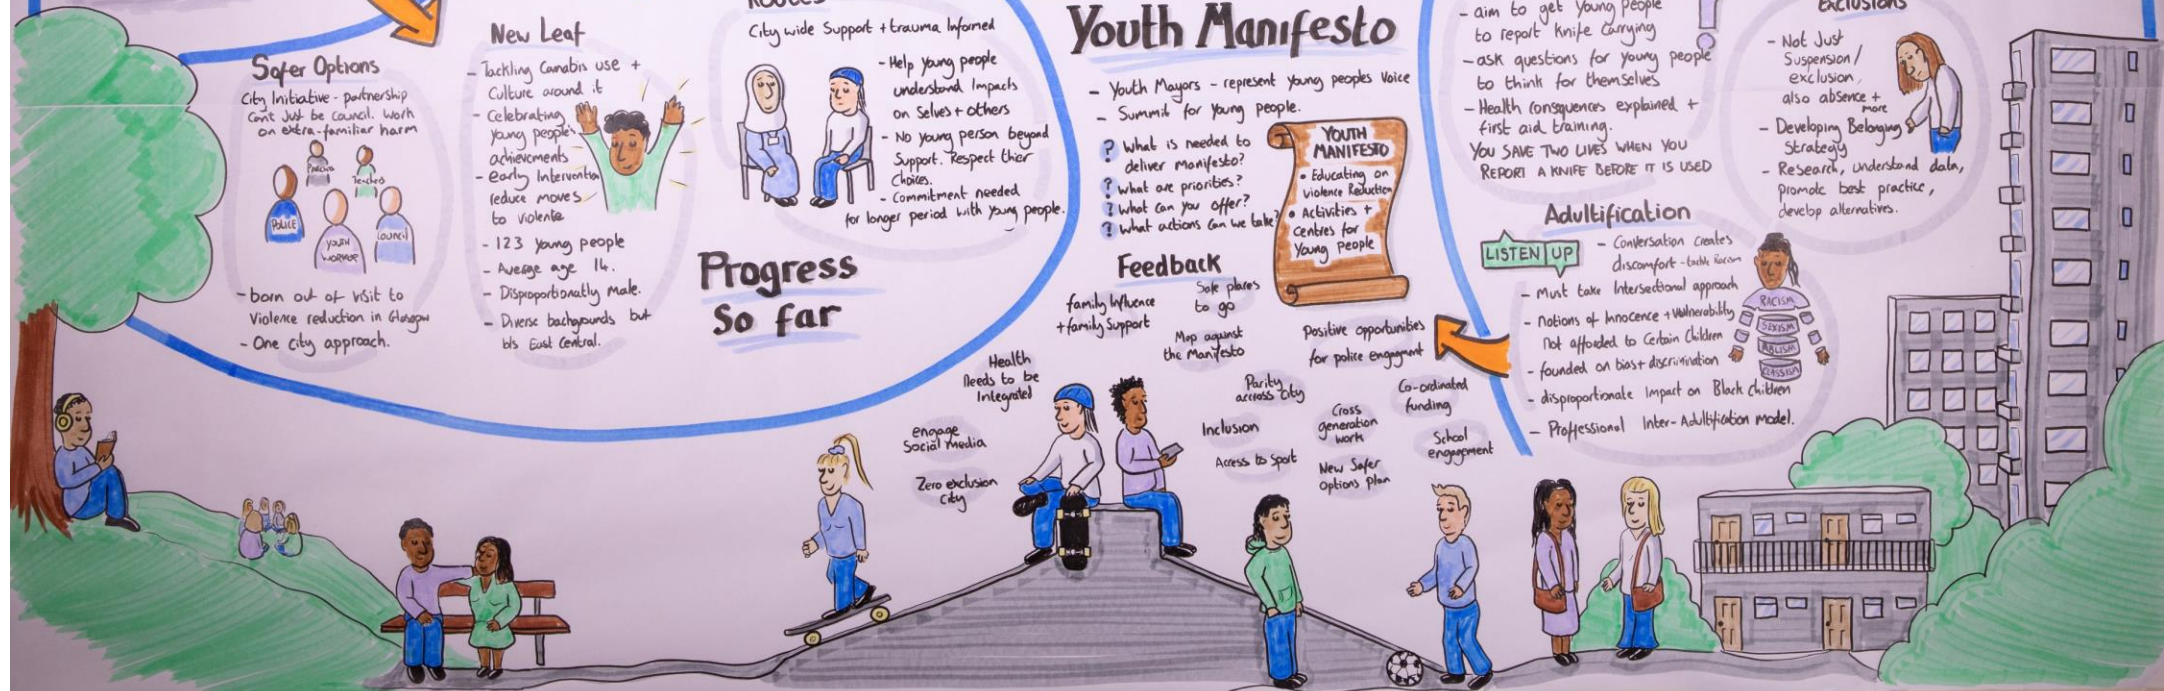 Safer Options
City Initiative - partnership
Cant Just be Council. Work
on extra-familiar harm
Teacher
POLICE
YOUTH
WORKER
Council
- born out of visit to
Violence reduction in Glasgow
- One city approach.
New Leaf
- Tackling Canabis use +
Culture around it
- Celebrating
young people's
achievements
- early Intervention
reduce moves
to violence
- 123 young people
- Average age 14.
- Disproportionatly male.
- Diverse backgrounds but
bls East Central.
Routes
City wide Support + trauma Informed
- Help young people
understand Impacts
on Selves + others
- No young person beyond
Support. Respect thier
Choices.
- Commitment needed
for longer period with young people.
Progress
So far
Youth Manifesto
- Youth Mayors - represent young peoples Voice
- Summit for Young people.
? What is needed to
deliver manifesto?
? What are priorities?
? What can you offer?
? What actions can we take?
YOUTH
MANIFESTO
• Educating on
violence Reduction
• Activities +
Centres for
Young people
Feedback
family Influence
+ family Support
Safe places
to go
Map against
the Manifesto
Positive opportunities
for police engagment
Health
Needs to be
Integrated
Parity
accross City
Co-ordinated
funding
engage
Social media
Inclusion
Cross
generation
work
School
engagement
Zero exclusion
City
Access to Sport
New Safer
Options Plan
- aim to get Young people
to report Knife Carrying
- ask questions for young people
to think for themselves
- Health consquences explained +
first aid training.
YOU SAVE TWO LIVES WHEN YOU
REPORT A KNIFE BEFORE IT IS USED
Exclusions
- Not Just
Suspension/
exclusion,
also absence +
more
- Developing Belonging
Strategy
- Research, understand data,
promote best practice,
develop alternatives.
Adultification
LISTEN UP
- Conversation creates
discomfort - tackle Racism
- Must take Intersectional approach
- Notions of Innocence + Vulnerability
Not afforded to Certain Children
- founded on bias + discrimination
- disproportionate Impact on Black Children
- Proffessional Inter-Adultification model.
RACISM
SEXISM
ABLISM
CLASSISM